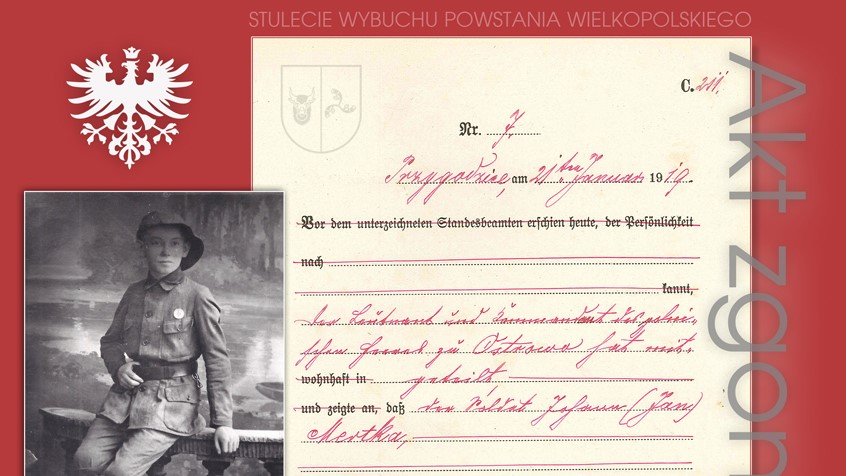 STULECIE WYBUCHU POWSTANIA WIELKOPOLSKIEGO
C. 211.
Nr. 7.
Przygodzice, am 21ten Januar 1919.
Vor dem unterzeichneten Standesbeamten erschien heute, der Persönlichkeit
nach
kannt,
der Leutnant und Kommandant des polni-
schen Heeres zu Ostrowo hat mit-
wohnhaft in geteilt
und zeigte an, daß der Soldat Johann (Jan)
Mertka,
Akt zgon